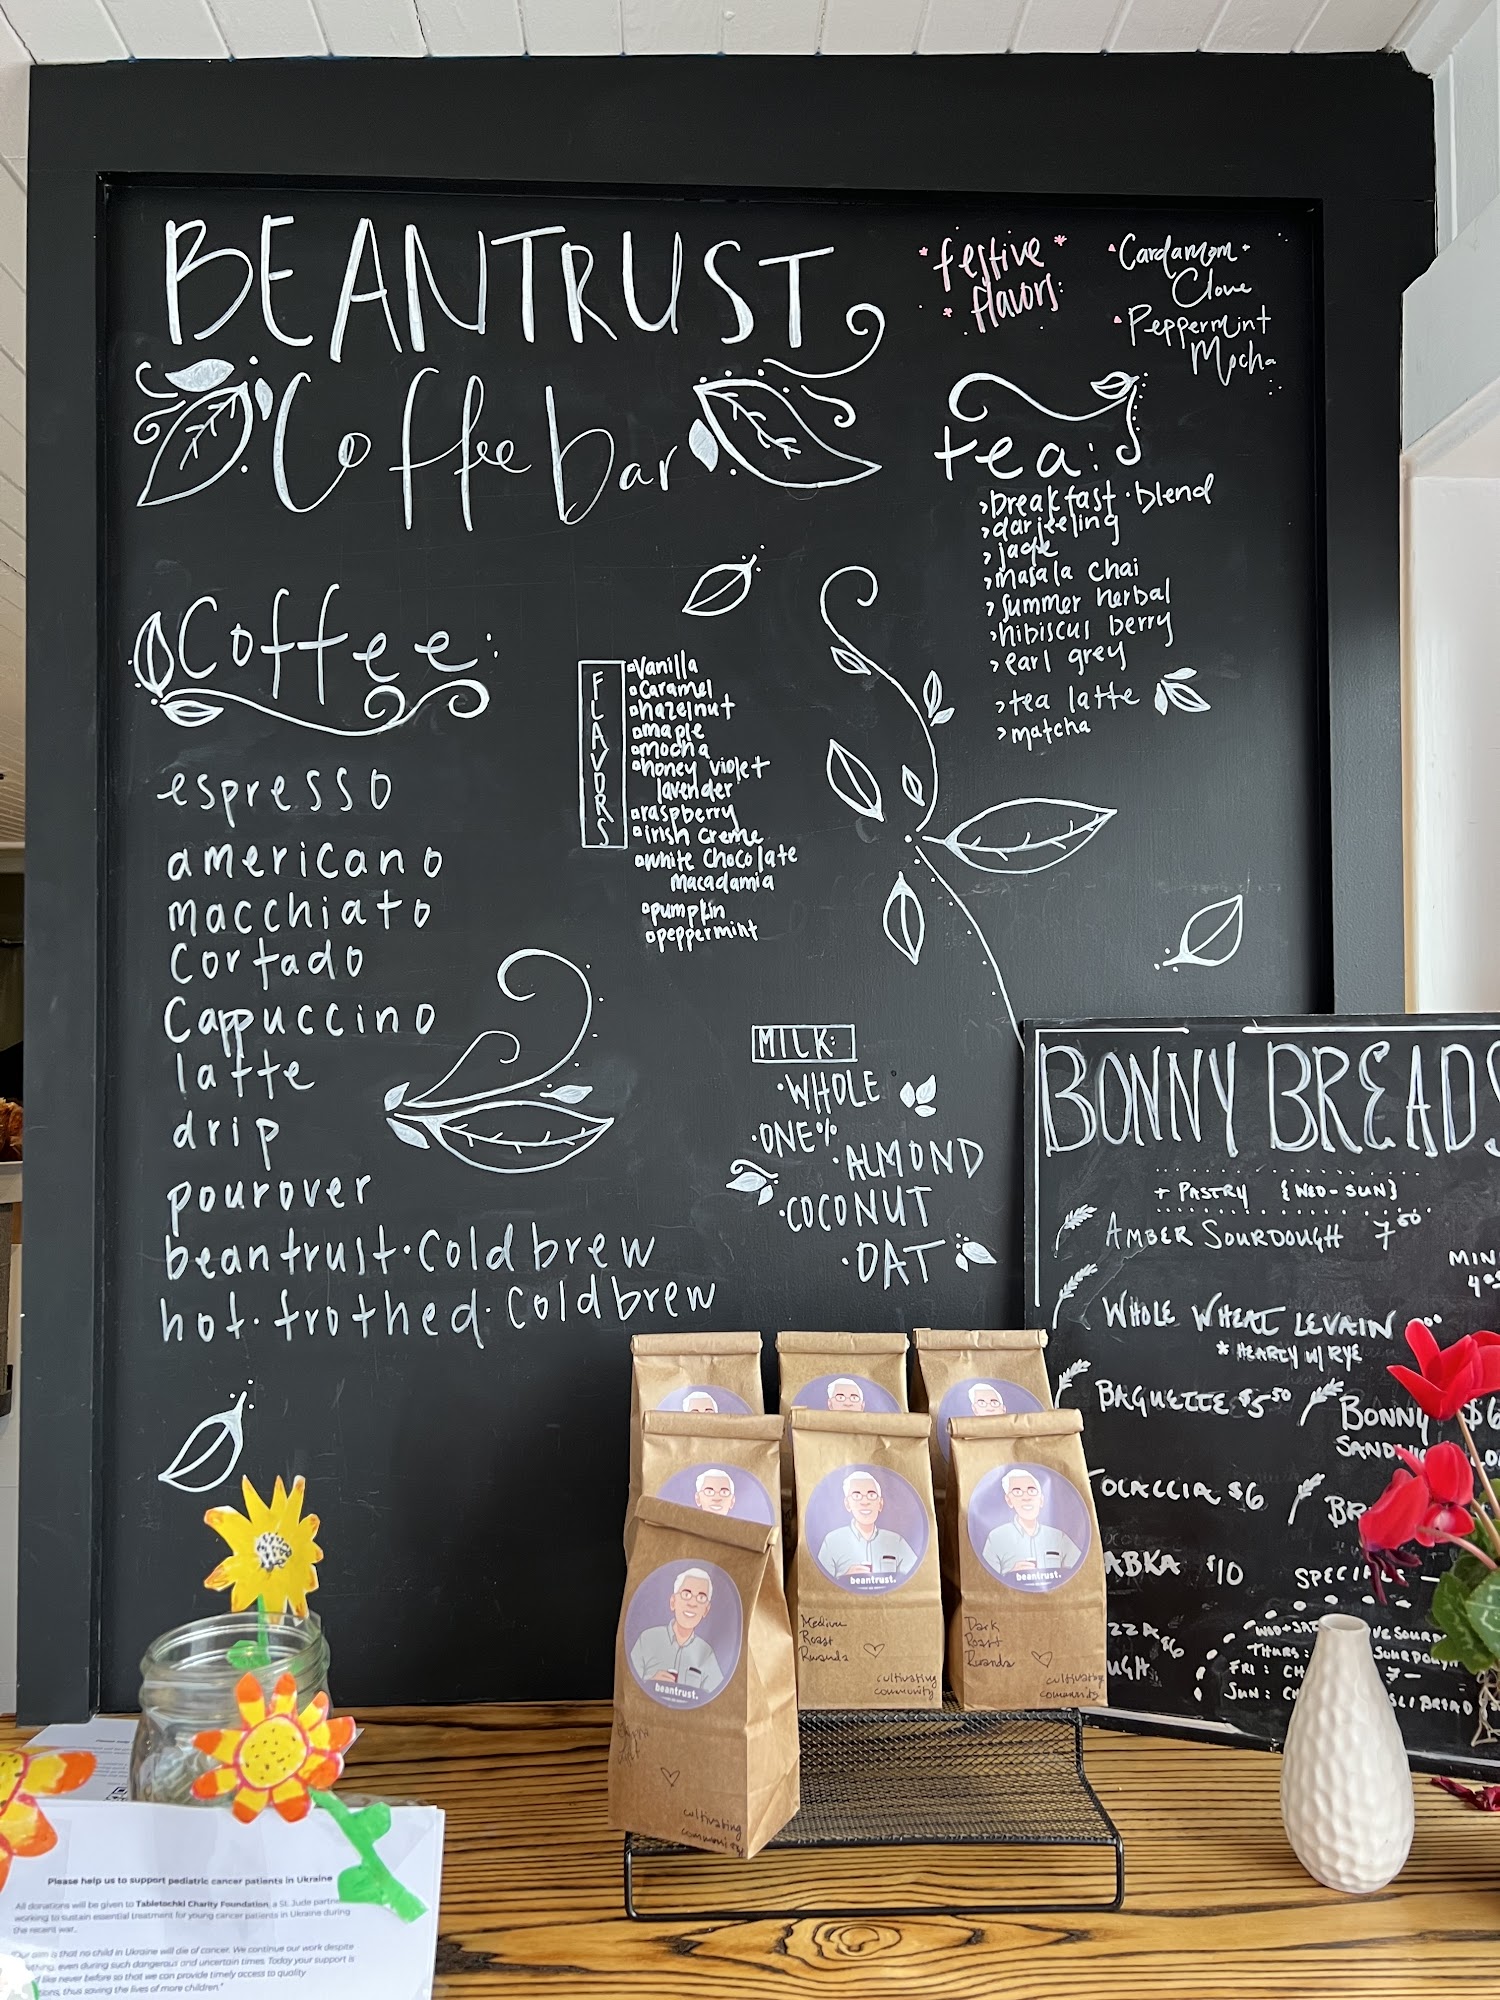 BEANTRUST
Coffee bar
*festive*
*flavors:
Cardamom
Clove
Peppermint
Mocha
tea:
breakfast·blend
darjeeling
jade
masala chai
summer herbal
hibiscus berry
earl grey
tea latte
matcha
Coffee:
espresso
americano
macchiato
cortado
Cappuccino
latte
drip
pourover
beantrust·cold brew
hot·frothed·cold brew
FLAVORS
Vanilla
Caramel
hazelnut
maple
mocha
honey violet
lavender
raspberry
irish creme
white chocolate
macadamia
pumpkin
peppermint
MILK:
·WHOLE
·ONE%
·ALMOND
·COCONUT
·OAT
BONNY BREADS
+ PASTRY {WED-SUN}
AMBER SOURDOUGH 7⁰⁰
MIN
WHOLE WHEAT LEVAIN
* HEARTY W/ RYE
BAGUETTE $5⁵⁰
BONNY $6
SAND
OCACCIA $6
BR
ABKA $10
SPECIALS —
ZZA $6
UGH
WED+SAT: VE SOURD
THURS: SOURDOUGH
FRI: CH 7-
SUN: CH SLI BREAD
beantrust.
Medium
Roast
Rwanda
cultivating
community
beantrust.
Dark
Roast
Rwanda
cultivating
community
beantrust.
cultivating
community
Please help us to support pediatric cancer patients in Ukraine
All donations will be given to Tabletochki Charity Foundation, a St. Jude partne
working to sustain essential treatment for young cancer patients in Ukraine during
the recent war.
"Our aim is that no child in Ukraine will die of cancer. We continue our work despite
thing, even during such dangerous and uncertain times. Today your support is
d like never before so that we can provide timely access to quality
tions, thus saving the lives of more children."